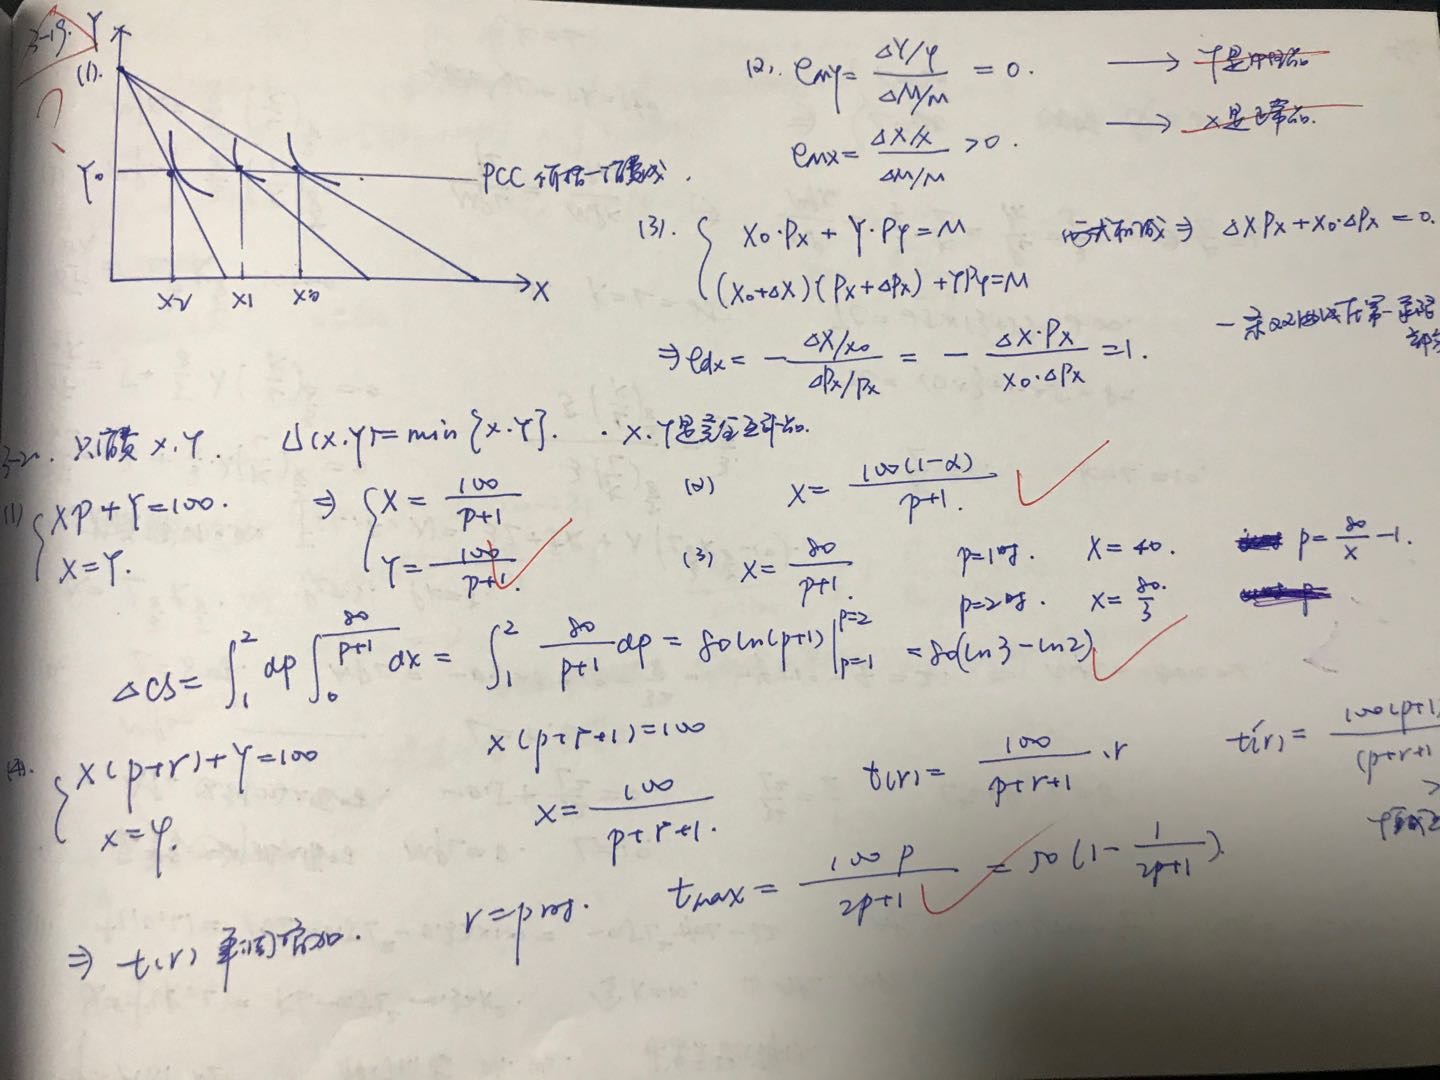 3-19.
Y
(1).
Y₀
PCC 价格—消费线.
X2 X1 X0 X
(2). eMY = (ΔY/Y)/(ΔM/M) = 0. → Y是中性品
eMX = (ΔX/X)/(ΔM/M) > 0. → X是正常品.
(3). { X₀·Px + Y·PY = M 两式相减 ⇒ ΔXPx + X₀·ΔPx = 0.
(X₀+ΔX)(Px+ΔPx) + YPY = M
⇒ edx = - (ΔX/X₀)/(ΔPx/Px) = - (ΔX·Px)/(X₀·ΔPx) = 1.
一条双曲线在第一象限
部分
只消费 X.Y. U(X.Y) = min {X.Y}. · X.Y是完全互补品.
(1) { XP+Y=100. ⇒ { X = 100/(P+1)
X=Y. Y = 100/(P+1).
(2) X = 100(1-α)/(P+1).
(3) X = 80/(P+1). P=1时. X=40. P = 80/X - 1.
P=2时. X = 80/3.
ΔCS = ∫₁² dp ∫₀^(80/(P+1)) dx = ∫₁² 80/(P+1) dp = 80 ln(P+1) |P=2 P=1 = 80(ln3-ln2)
(4). { X(P+r)+Y=100 X(P+r+1)=100
X=Y. X = 100/(P+r+1).
t(r) = 100/(P+r+1) ·r t'(r) = 100(P+1)/(P+r+1
>
⇒ t(r) 单调增加. r=P时. tmax = 100P/(2P+1) = 50(1 - 1/(2P+1)).